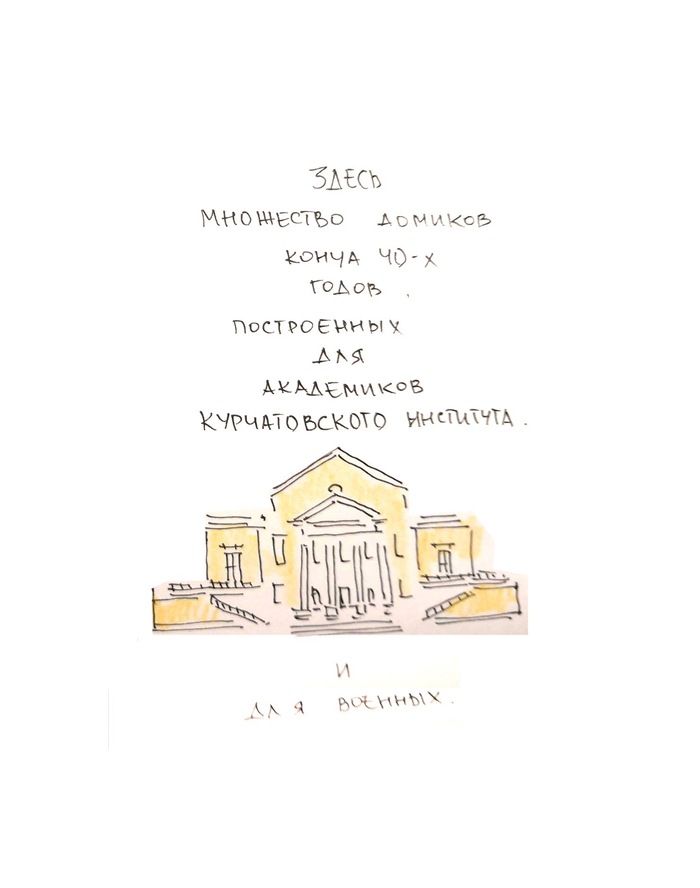 ЗДЕСЬ
МНОЖЕСТВО ДОМИКОВ
КОНЧА 40-Х
ГОДОВ,
ПОСТРОЕННЫХ
ДЛЯ
АКАДЕМИКОВ
КУРЧАТОВСКОГО ИНСТИТУТА.
И
ДЛЯ ВОЕННЫХ.